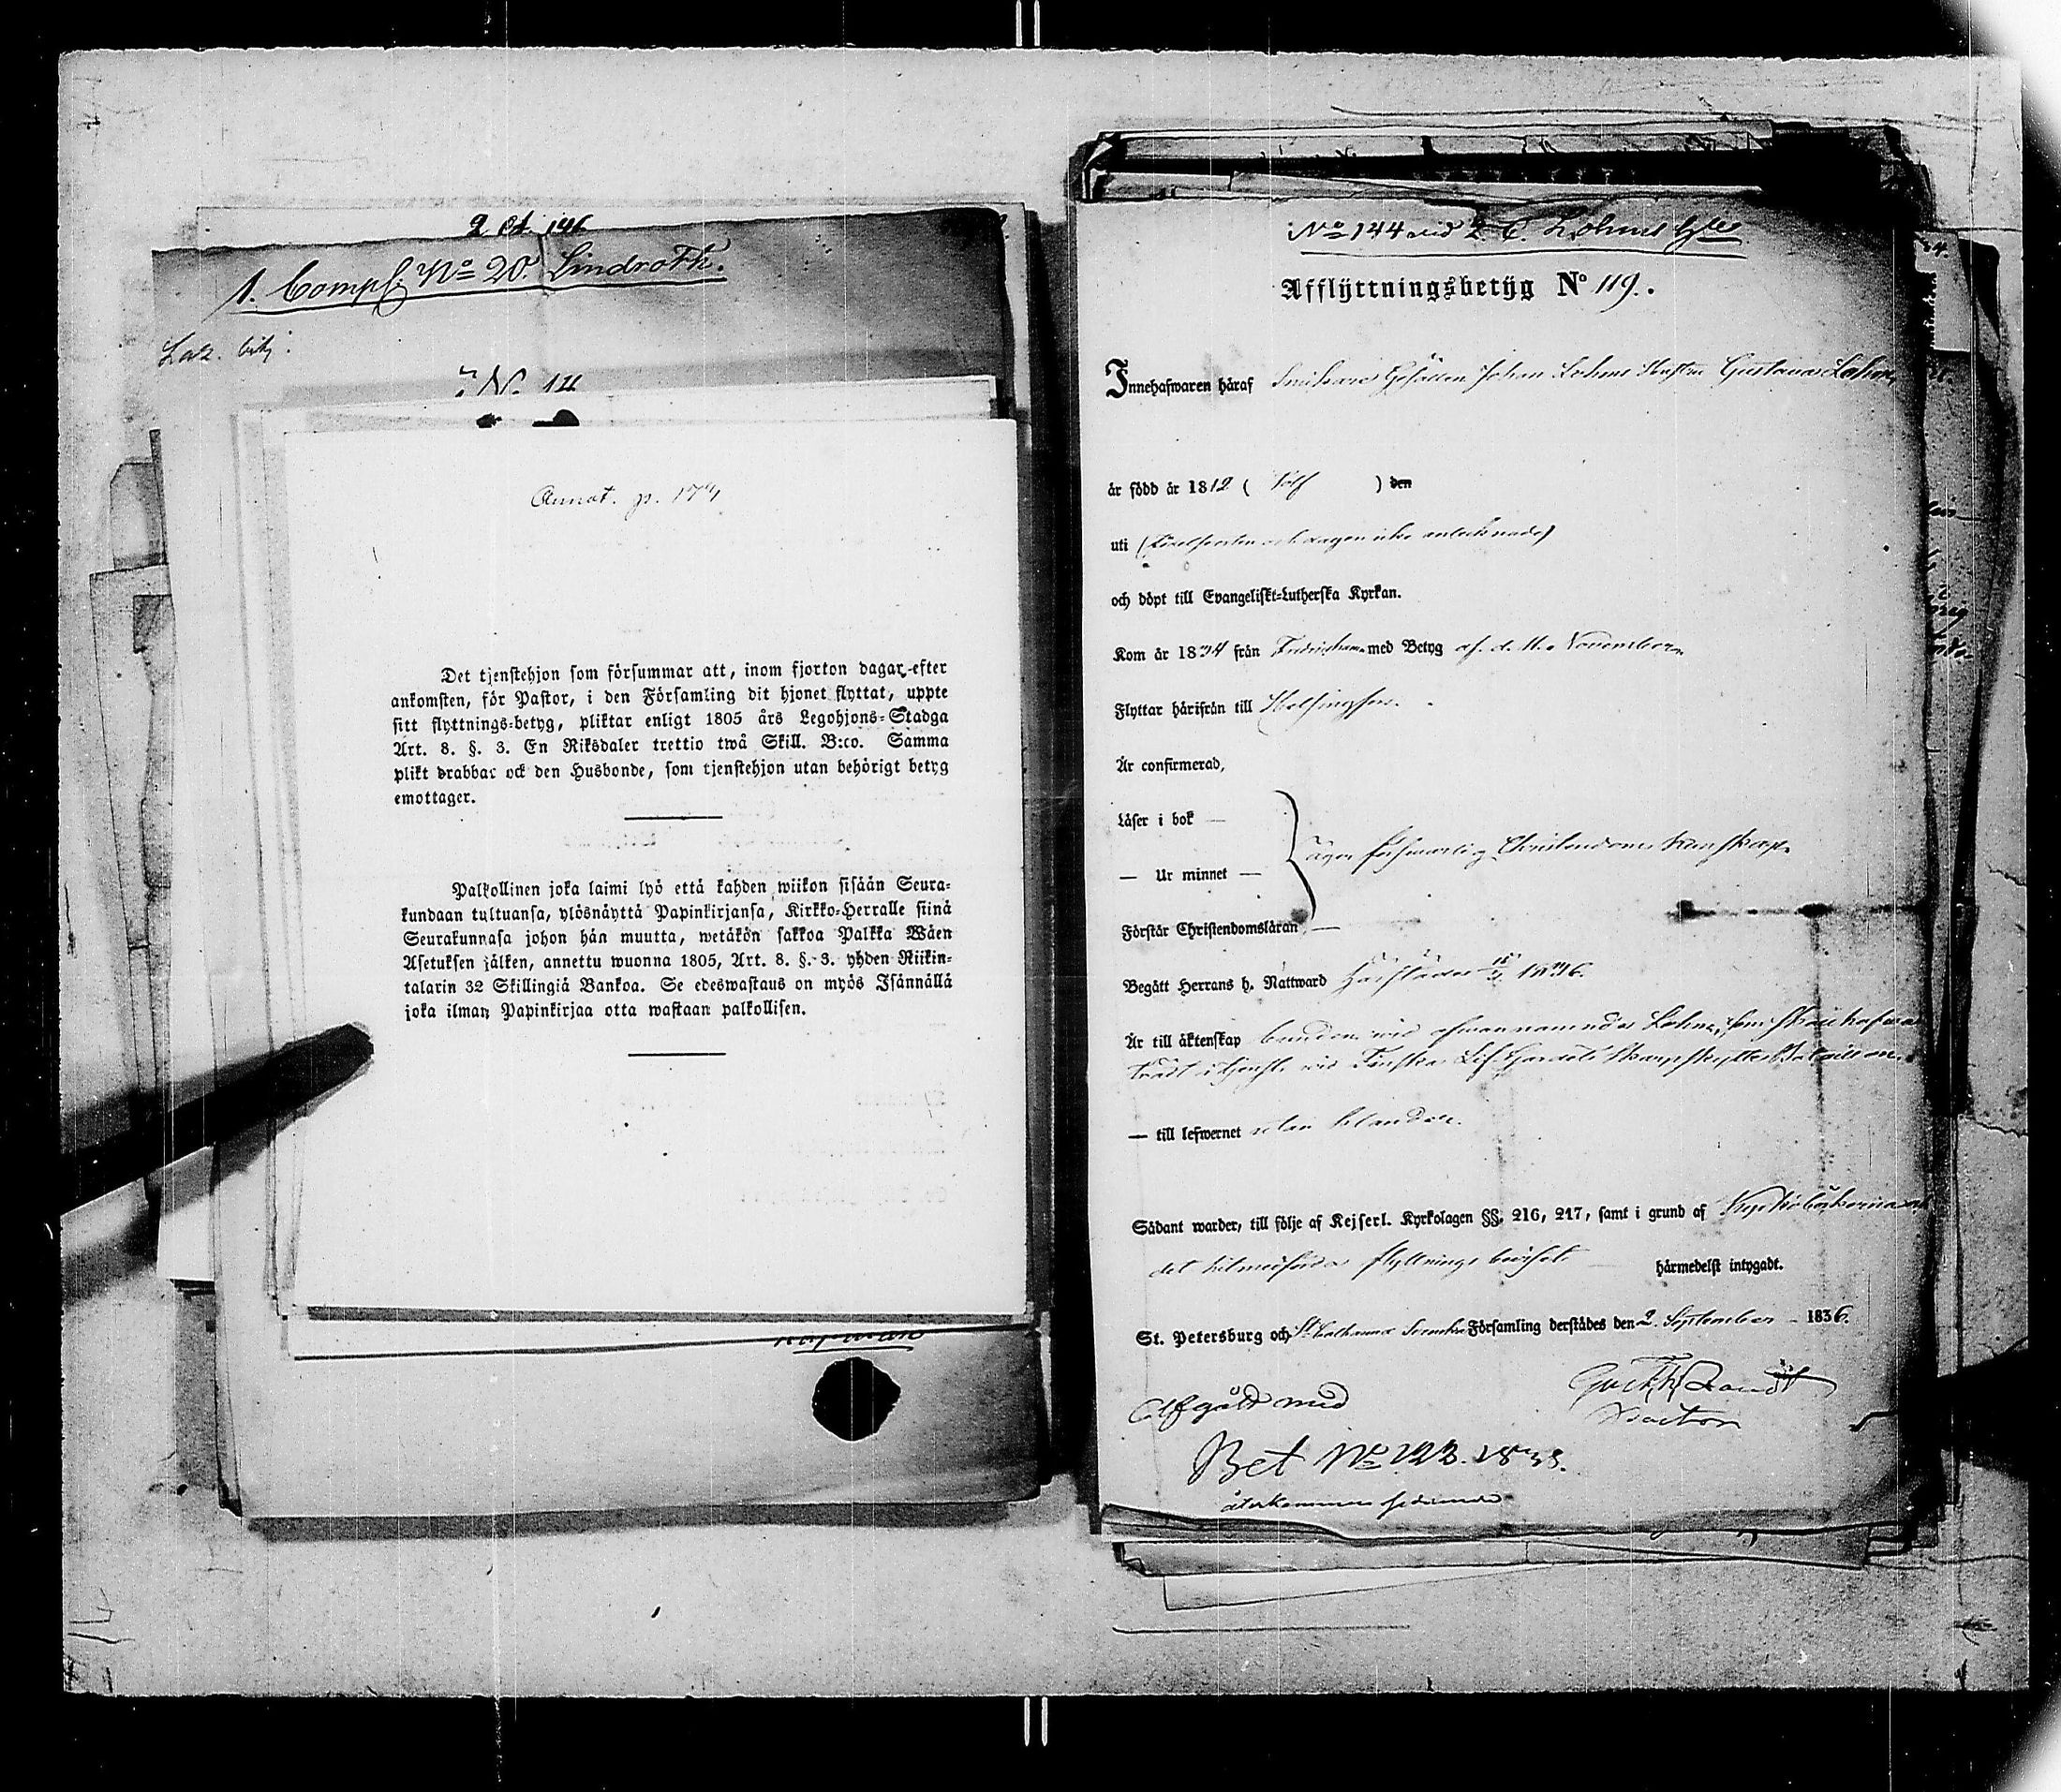 2 Ct. 146
1. Comp. No 20. Lindroth.
Laz. bet:
No. 14
Annot. p. 174
Det tjenstehjon som försummar att, inom fjorton dagar efter
ankomsten, för Pastor, i den Församling dit hjonet flyttat, uppte
sitt flyttnings-betyg, pliktar enligt 1805 års Legohjons-Stadga
Art. 8. §. 3. En Riksdaler trettio twå Skill. B:co. Samma
plikt drabbar ock den Husbonde, som tjenstehjon utan behörigt betyg
emottager.
Palkollinen joka laimi lyö että kahden wiikon sisään Seura-
kundaan tultuansa, ylösnäyttä Papinkirjansa, Kirkko-Herralle siinä
Seurakunnasa johon hän muutta, wetäkön sakkoa Palkka Wäen
Asetuksen jälken, annettu wuonna 1805, Art. 8. §. 3. yhden Riikin-
talarin 32 Skillingiä Bankoa. Se edeswastaus on myös Isännällä
joka ilman Papinkirjaa otta wastaan palkollisen.
No 144 vid 2 C. Lohms
Afflÿttningsbetÿg No 119.
Innehafwaren häraf Gesällen Johan Lohms Hustru Gustava Lohm,
är född år 1812 ( tolf ) den
uti (födelseorten och dagen icke antecknade)
och döpt till Evangeliskt-Lutherska Kyrkan.
Kom år 1834 från Fredrichham med Betyg af d. 11 November
Flyttar härifrån till Helsingfors.
Är confirmerad,
Läser i bok —
— Ur minnet —
äger försvarlig Christendoms kunskap.
Förstår Christendomsläran —
Begått Herrans h. Nattward härstädes 1836.
Är till äktenskap bunden vid ofvannämnde Lohm, som skall hafva
trädt i tjenst vid Finska Lif-Gardets Skarpskytte Bataillon.
— till lefwernet utan klander.
Sådant warder, till följe af Kejserl. Kyrkolagen §§. 216, 217, samt i grund af Kyrkoböckerna och
det hitmedförda flyttnings beviset härmedelst intygadt.
St. Petersburg och St Catharina Svenska Församling derstädes den 2. September 1836.
Pastor
Afgått med
Bet No 122. 1838.
återkommen